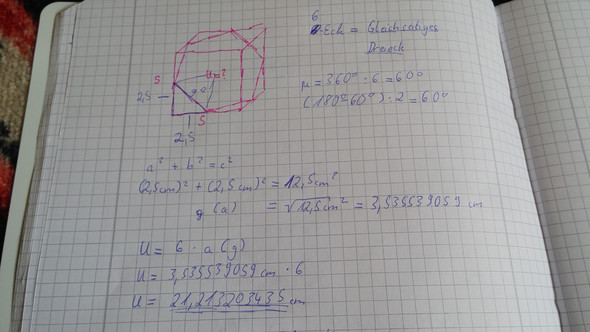 6
-Eck = Gleichseitiges
Dreieck
µ = 360° : 6 = 60°
(180°-60°) : 2 = 60°
S
µ=?
g a
2,5
S
2,5
a² + b² = c²
(2,5cm)² + (2,5cm)² = 12,5cm²
g (a) = √12,5cm² = 3,535539059 cm
U = 6 · a (g)
U = 3,535539059 cm · 6
U = 21,213203435 cm